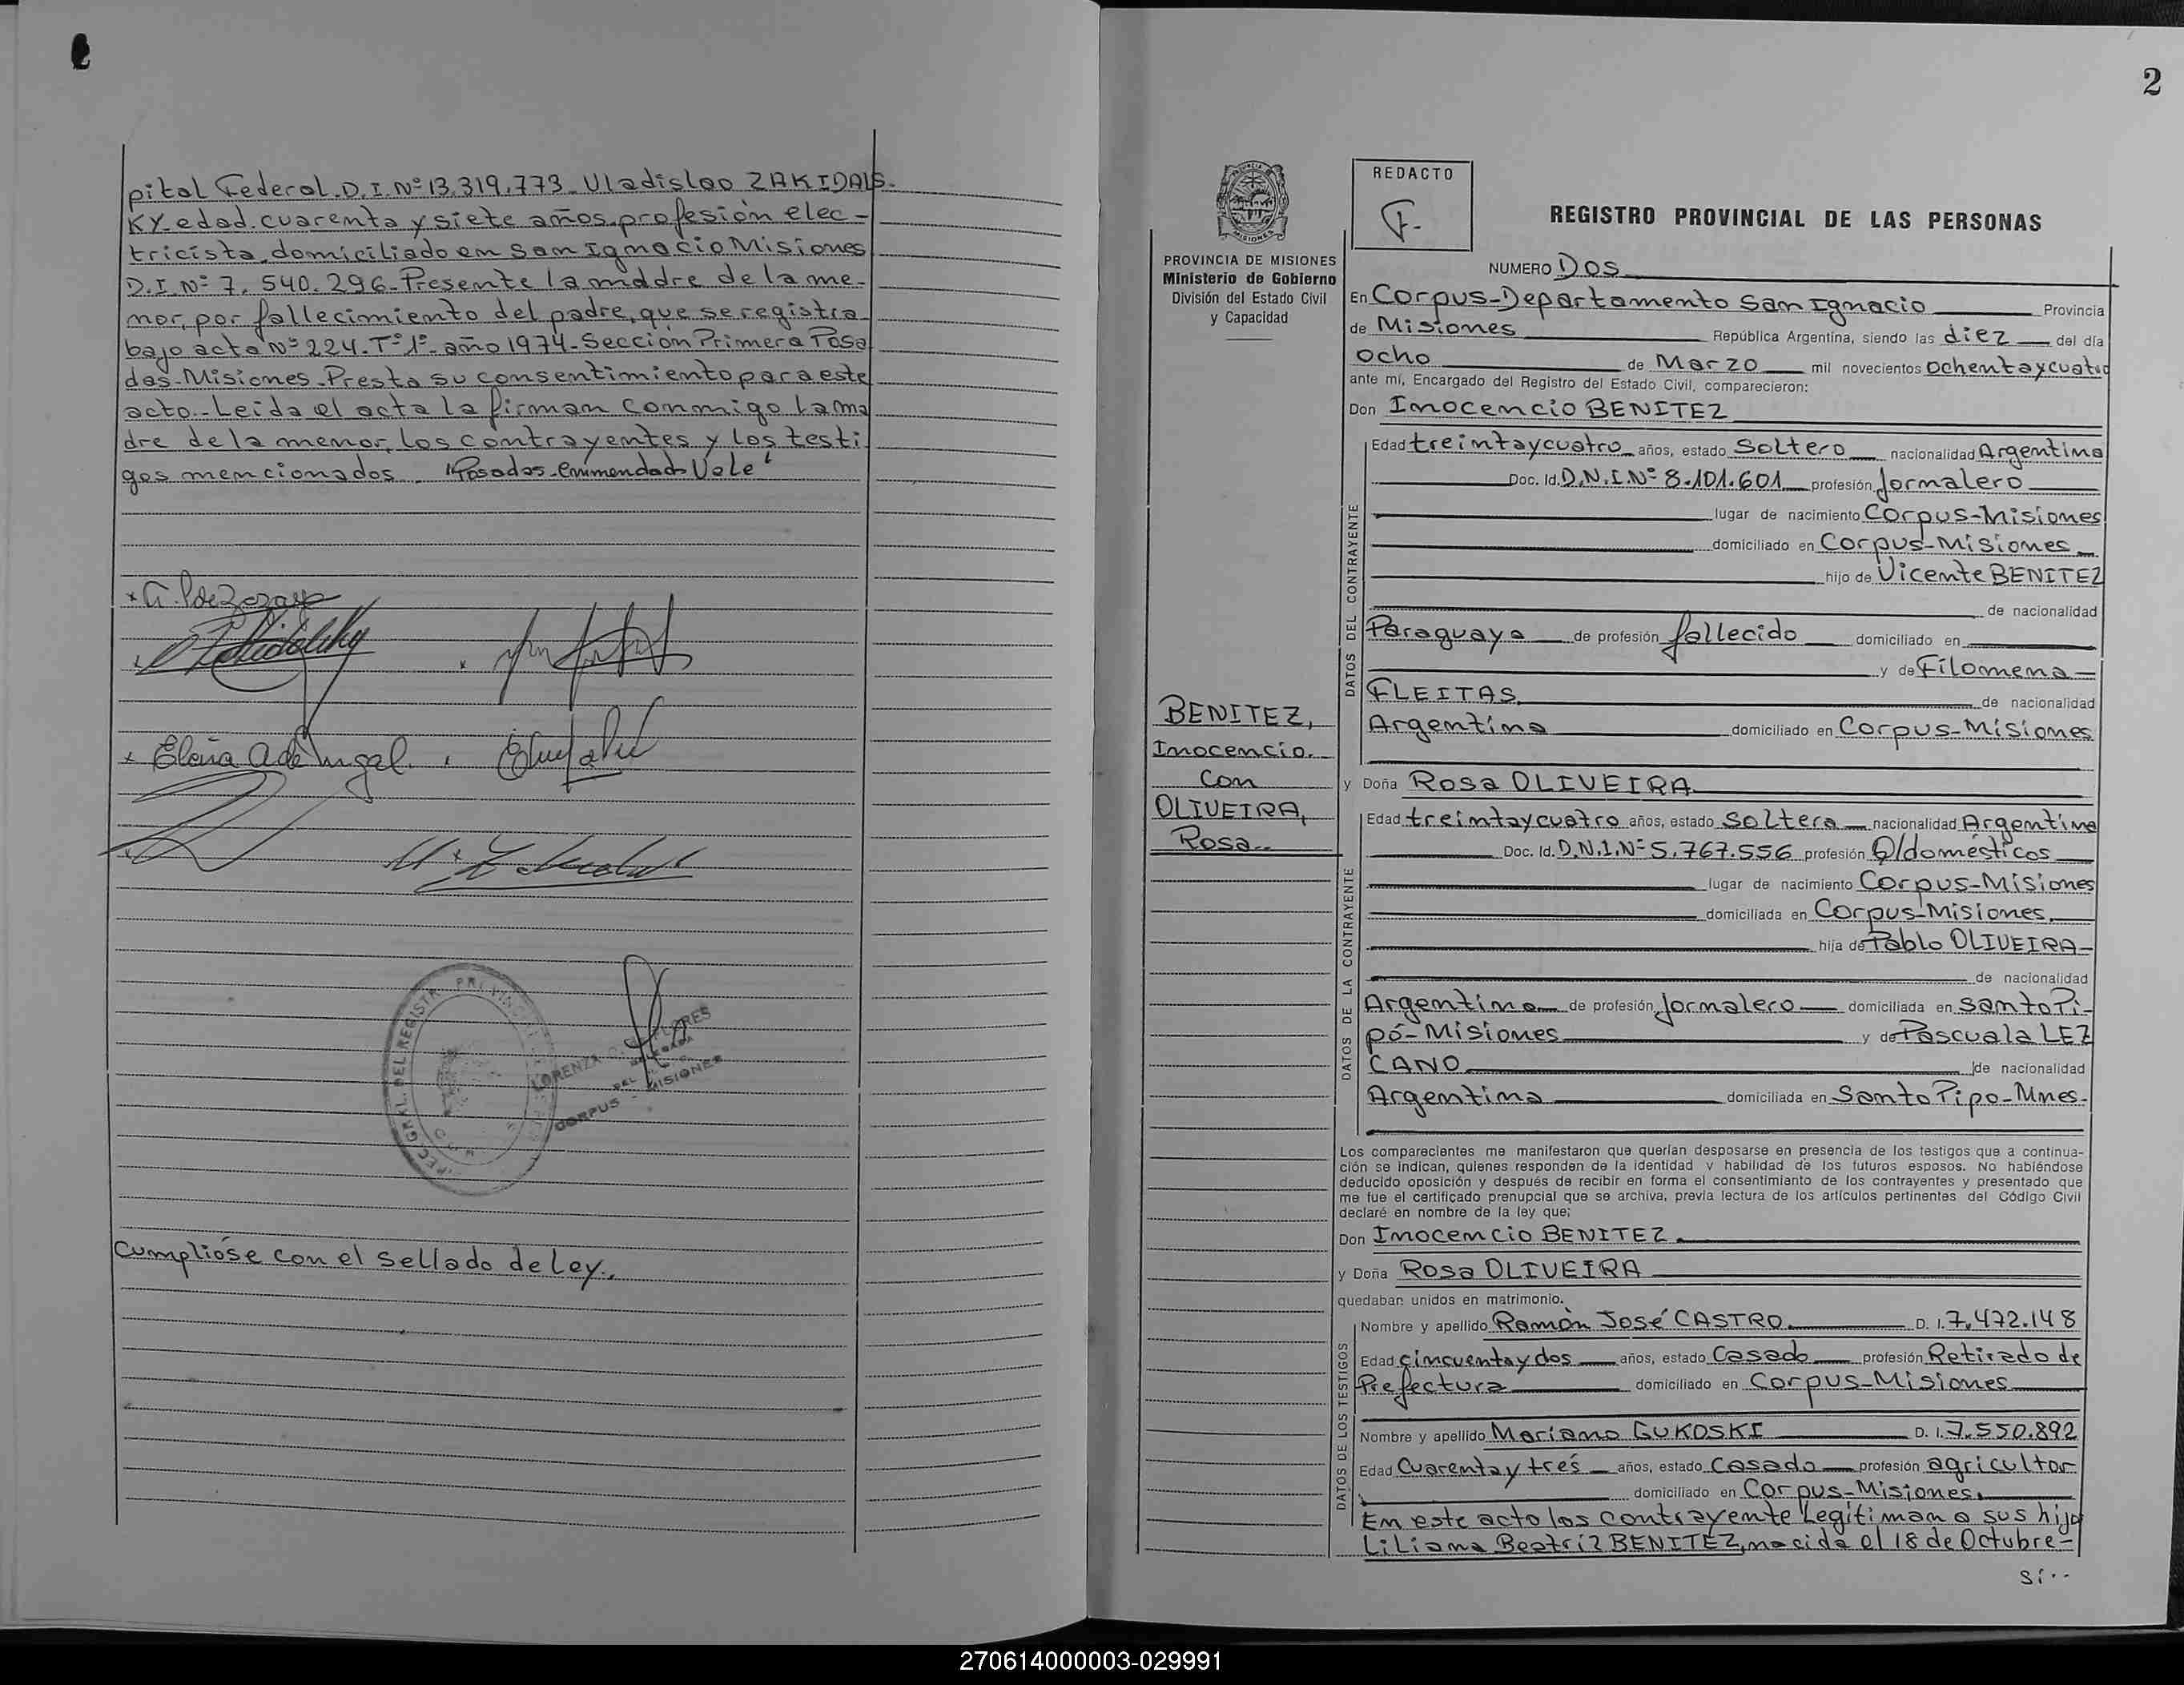 pital Federal. D. I. Nº 13.319.773. Uladislao ZAKIDALS
KY edad. cuarenta y siete años. profesión elec-
tricista, domiciliado en San Ignacio Misiones
D.I. Nº 7. 540. 296. Presente la maddre de la me-
nor, por fallecimiento del padre, que se registra
bajo acta Nº 224. Tº 1º. año 1974. Sección Primera Posa
das. Misiones. Presta su consentimiento para este
acto.- Leida el acta la firman conmigo la ma
dre de la menor, los contrayentes y los testi
gos mencionados. "Posadas. Enmendado Vale"
Elena A de
DEL REGISTR. PROVINC
LORENZA FLORES
DELEGADA
DEL
CORPUS - MISIONES
Cumpliose con el sellado de ley.
2
PROVINCIA DE MISIONES
Ministerio de Gobierno
División del Estado Civil
y Capacidad
BENITEZ,
Inocencio.
Con
OLIVEIRA,
Rosa..
REDACTO
F.
REGISTRO PROVINCIAL DE LAS PERSONAS
NUMERO DOS
En Corpus-Departamento San Ignacio Provincia
de Misiones República Argentina, siendo las diez del día
ocho de Marzo mil novecientos ochentaycuatro
ante mí, Encargado del Registro del Estado Civil, comparecieron:
Don Inocencio BENITEZ
DATOS DEL CONTRAYENTE
Edad treintaycuatro años, estado Soltero nacionalidad Argentina
Doc. Id. D.N.I. Nº 8.101.601 profesión Jornalero
lugar de nacimiento Corpus-Misiones
domiciliado en Corpus-Misiones
hijo de Vicente BENITEZ
de nacionalidad
Paraguaya de profesión fallecido domiciliado en
y de Filomena
FLEITAS. de nacionalidad
Argentina domiciliado en Corpus-Misiones
y Doña Rosa OLIVEIRA
DATOS DE LA CONTRAYENTE
Edad treintaycuatro años, estado Soltera nacionalidad Argentina
Doc. Id. D.N.I. Nº 5.767.556 profesión Q/domésticos
lugar de nacimiento Corpus-Misiones
domiciliada en Corpus-Misiones
hija de Pablo OLIVEIRA
de nacionalidad
Argentina de profesión Jornalero domiciliada en Santo Pi-
pó-Misiones y de Pascuala LEZ
CANO de nacionalidad
Argentina domiciliada en Santo Pipo-Mnes.
Los comparecientes me manifestaron que querían desposarse en presencia de los testigos que a continua-
ción se indican, quienes responden de la identidad y habilidad de los futuros esposos. No habiéndose
deducido oposición y después de recibir en forma el consentimiento de los contrayentes y presentado que
me fue el certificado prenupcial que se archiva, previa lectura de los artículos pertinentes del Código Civil
declaré en nombre de la ley que;
Don Inocencio BENITEZ.
y Doña Rosa OLIVEIRA
quedaban unidos en matrimonio.
DATOS DE LOS TESTIGOS
Nombre y apellido Ramón José CASTRO. D. I. 7.472.148
Edad cincuentaydos años, estado Casado profesión Retirado de
Prefectura domiciliado en Corpus-Misiones
Nombre y apellido Mariano GUKOSKI D. I. 7.550.892
Edad Cuarentay tres años, estado Casado profesión agricultor
domiciliado en Corpus-Misiones.
En este acto los contrayente Legitiman a sus hijo
Liliana Beatríz BENITEZ, nacida el 18 de Octubre-
Si..
270614000003-029991